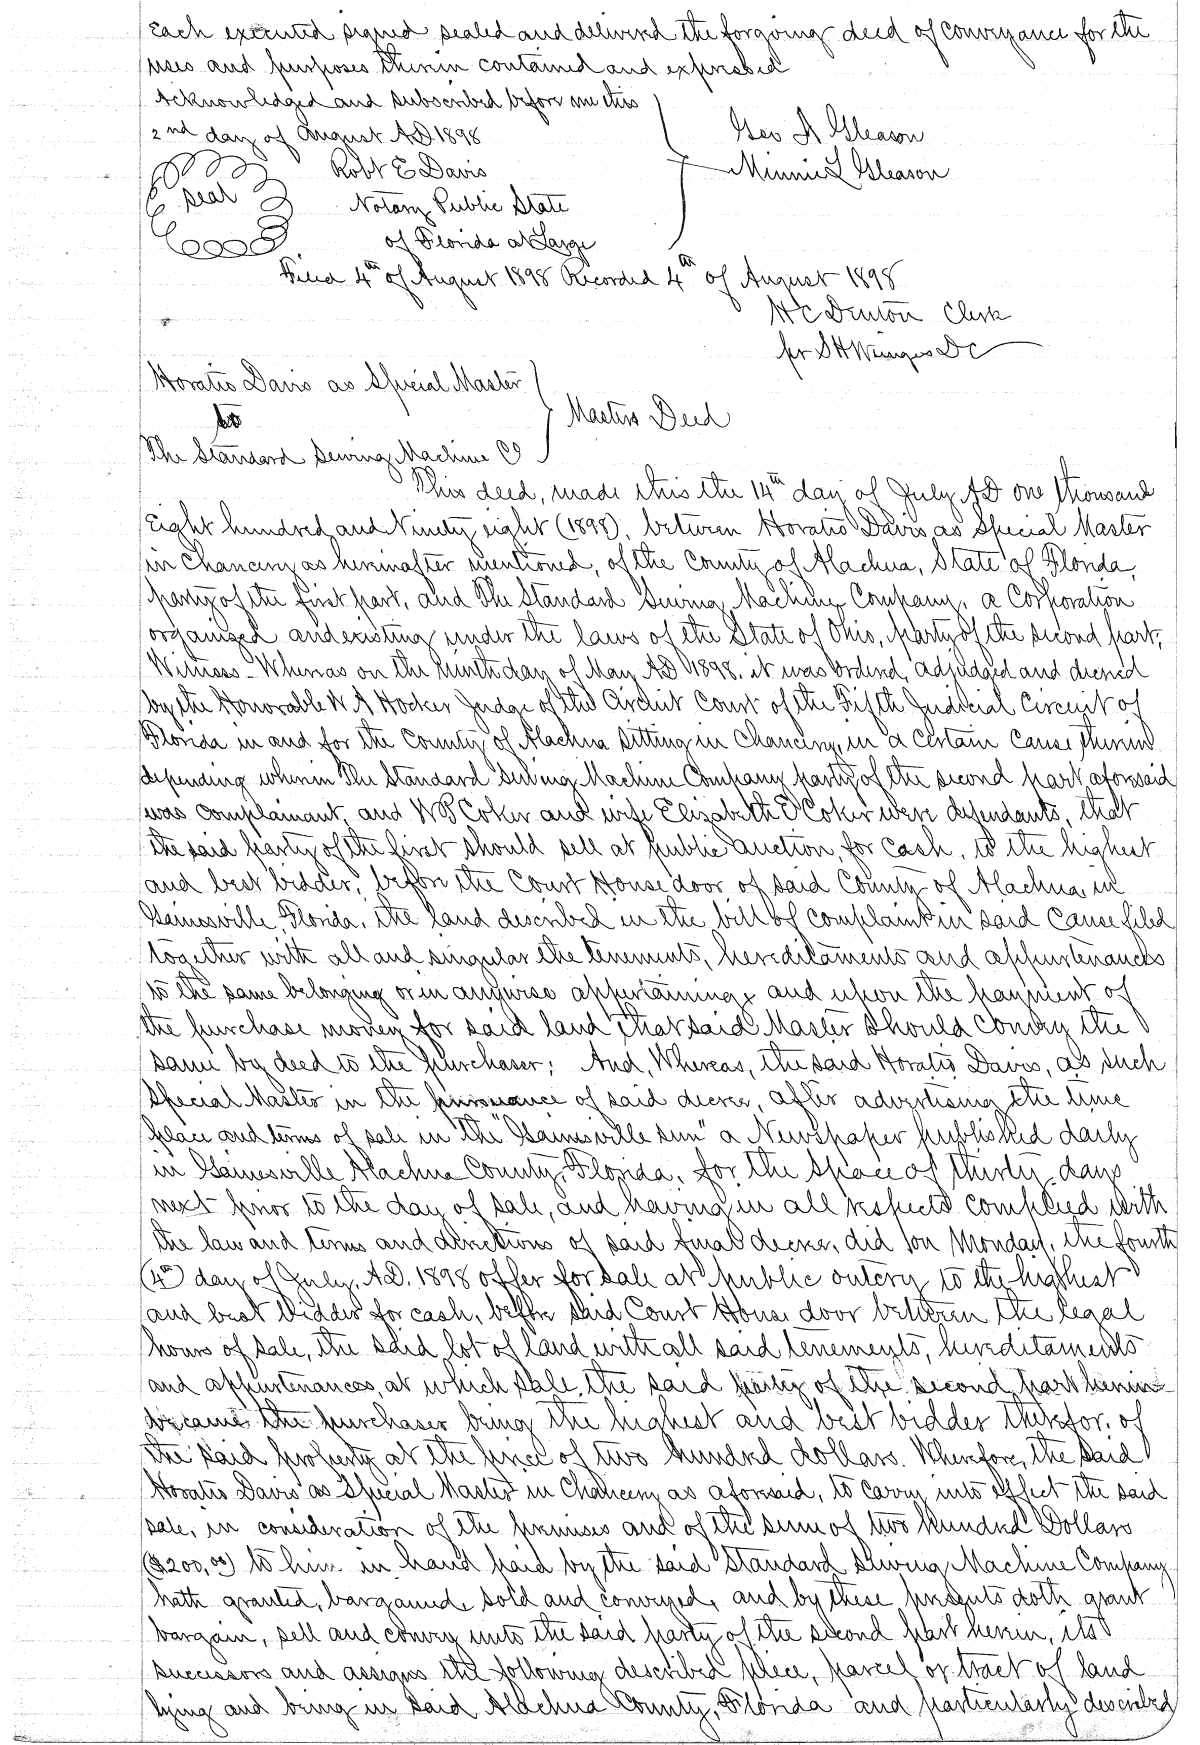 Each executed signed sealed and delivered the forgoing deed of conveyance for the
uses and purposes therein contained and expressed
Acknowledged and subscribed before me this
2nd day of August A.D. 1898
Geo A Gleason
Minnie L Gleason
Robt E Davis
Seal
Notary Public State
of Florida at Large
Filed 4th of August 1898 Recorded 4th of August 1898
H C Denton Clerk
pr S H Wienges D C
Horatio Davis as Special Master
to
The Standard Sewing Machine Co
Masters Deed
This deed, made this the 14th day of July A.D. one thousand
Eight hundred and Ninety eight (1898), between Horatio Davis as Special Master
in Chancery as hereinafter mentioned, of the County of Alachua, State of Florida,
party of the first part, and The Standard Sewing Machine Company, a Corporation
organized and existing under the laws of the State of Ohio, party of the second part,
Witness - Whereas on the Ninth day of May A.D. 1898, it was ordered, adjudged and decreed
by the Honorable W A Hocker Judge of the Circuit Court of the Fifth Judicial Circuit of
Florida in and for the County of Alachua Sitting in Chancery, in a certain cause therein
depending wherein The Standard Sewing Machine Company party of the second part aforesaid
was complainant, and W P Coker and wife Elizabeth E Coker were defendants, that
the said party of the first should sell at public auction, for cash, to the highest
and best bidder, before the Court House door of said County of Alachua, in
Gainesville, Florida, the land described in the bill of complaint in said cause filed
together with all and singular the tenements, hereditaments and appurtenances
to the same belonging or in anywise appertaining, and upon the payment of
the purchase money for said land that said Master should convey the
same by deed to the purchaser; And, Whereas, the said Horatio Davis, as such
Special Master in the pursuance of said decree, after advertising the time
place and terms of sale in the "Gainesville Sun" a Newspaper published daily
in Gainesville Alachua County, Florida, for the space of thirty days
next prior to the day of sale, and having in all respects complied with
the law and terms and directions of said final decree, did on Monday, the fourth
(4th) day of July, A.D. 1898 offer for sale at public outcry to the highest
and best bidder for cash, before said Court House door between the legal
hours of sale, the said lot of land with all said tenements, hereditaments
and appurtenances, at which sale, the said party of the second part herein
became the purchaser being the highest and best bidder therefor, of
the said property at the price of two hundred dollars. Wherefore, the said
Horatio Davis as Special Master in Chancery as aforesaid, to carry into effect the said
sale, in consideration of the premises and of the sum of two hundred Dollars
($200.00) to him in hand paid by the said Standard Sewing Machine Company
hath granted, bargained, sold and conveyed, and by these presents doth grant
bargain, sell and convey unto the said party of the second part herein, its
successors and assigns the following described piece, parcel or tract of land
lying and being in said Alachua County, Florida and particularly described